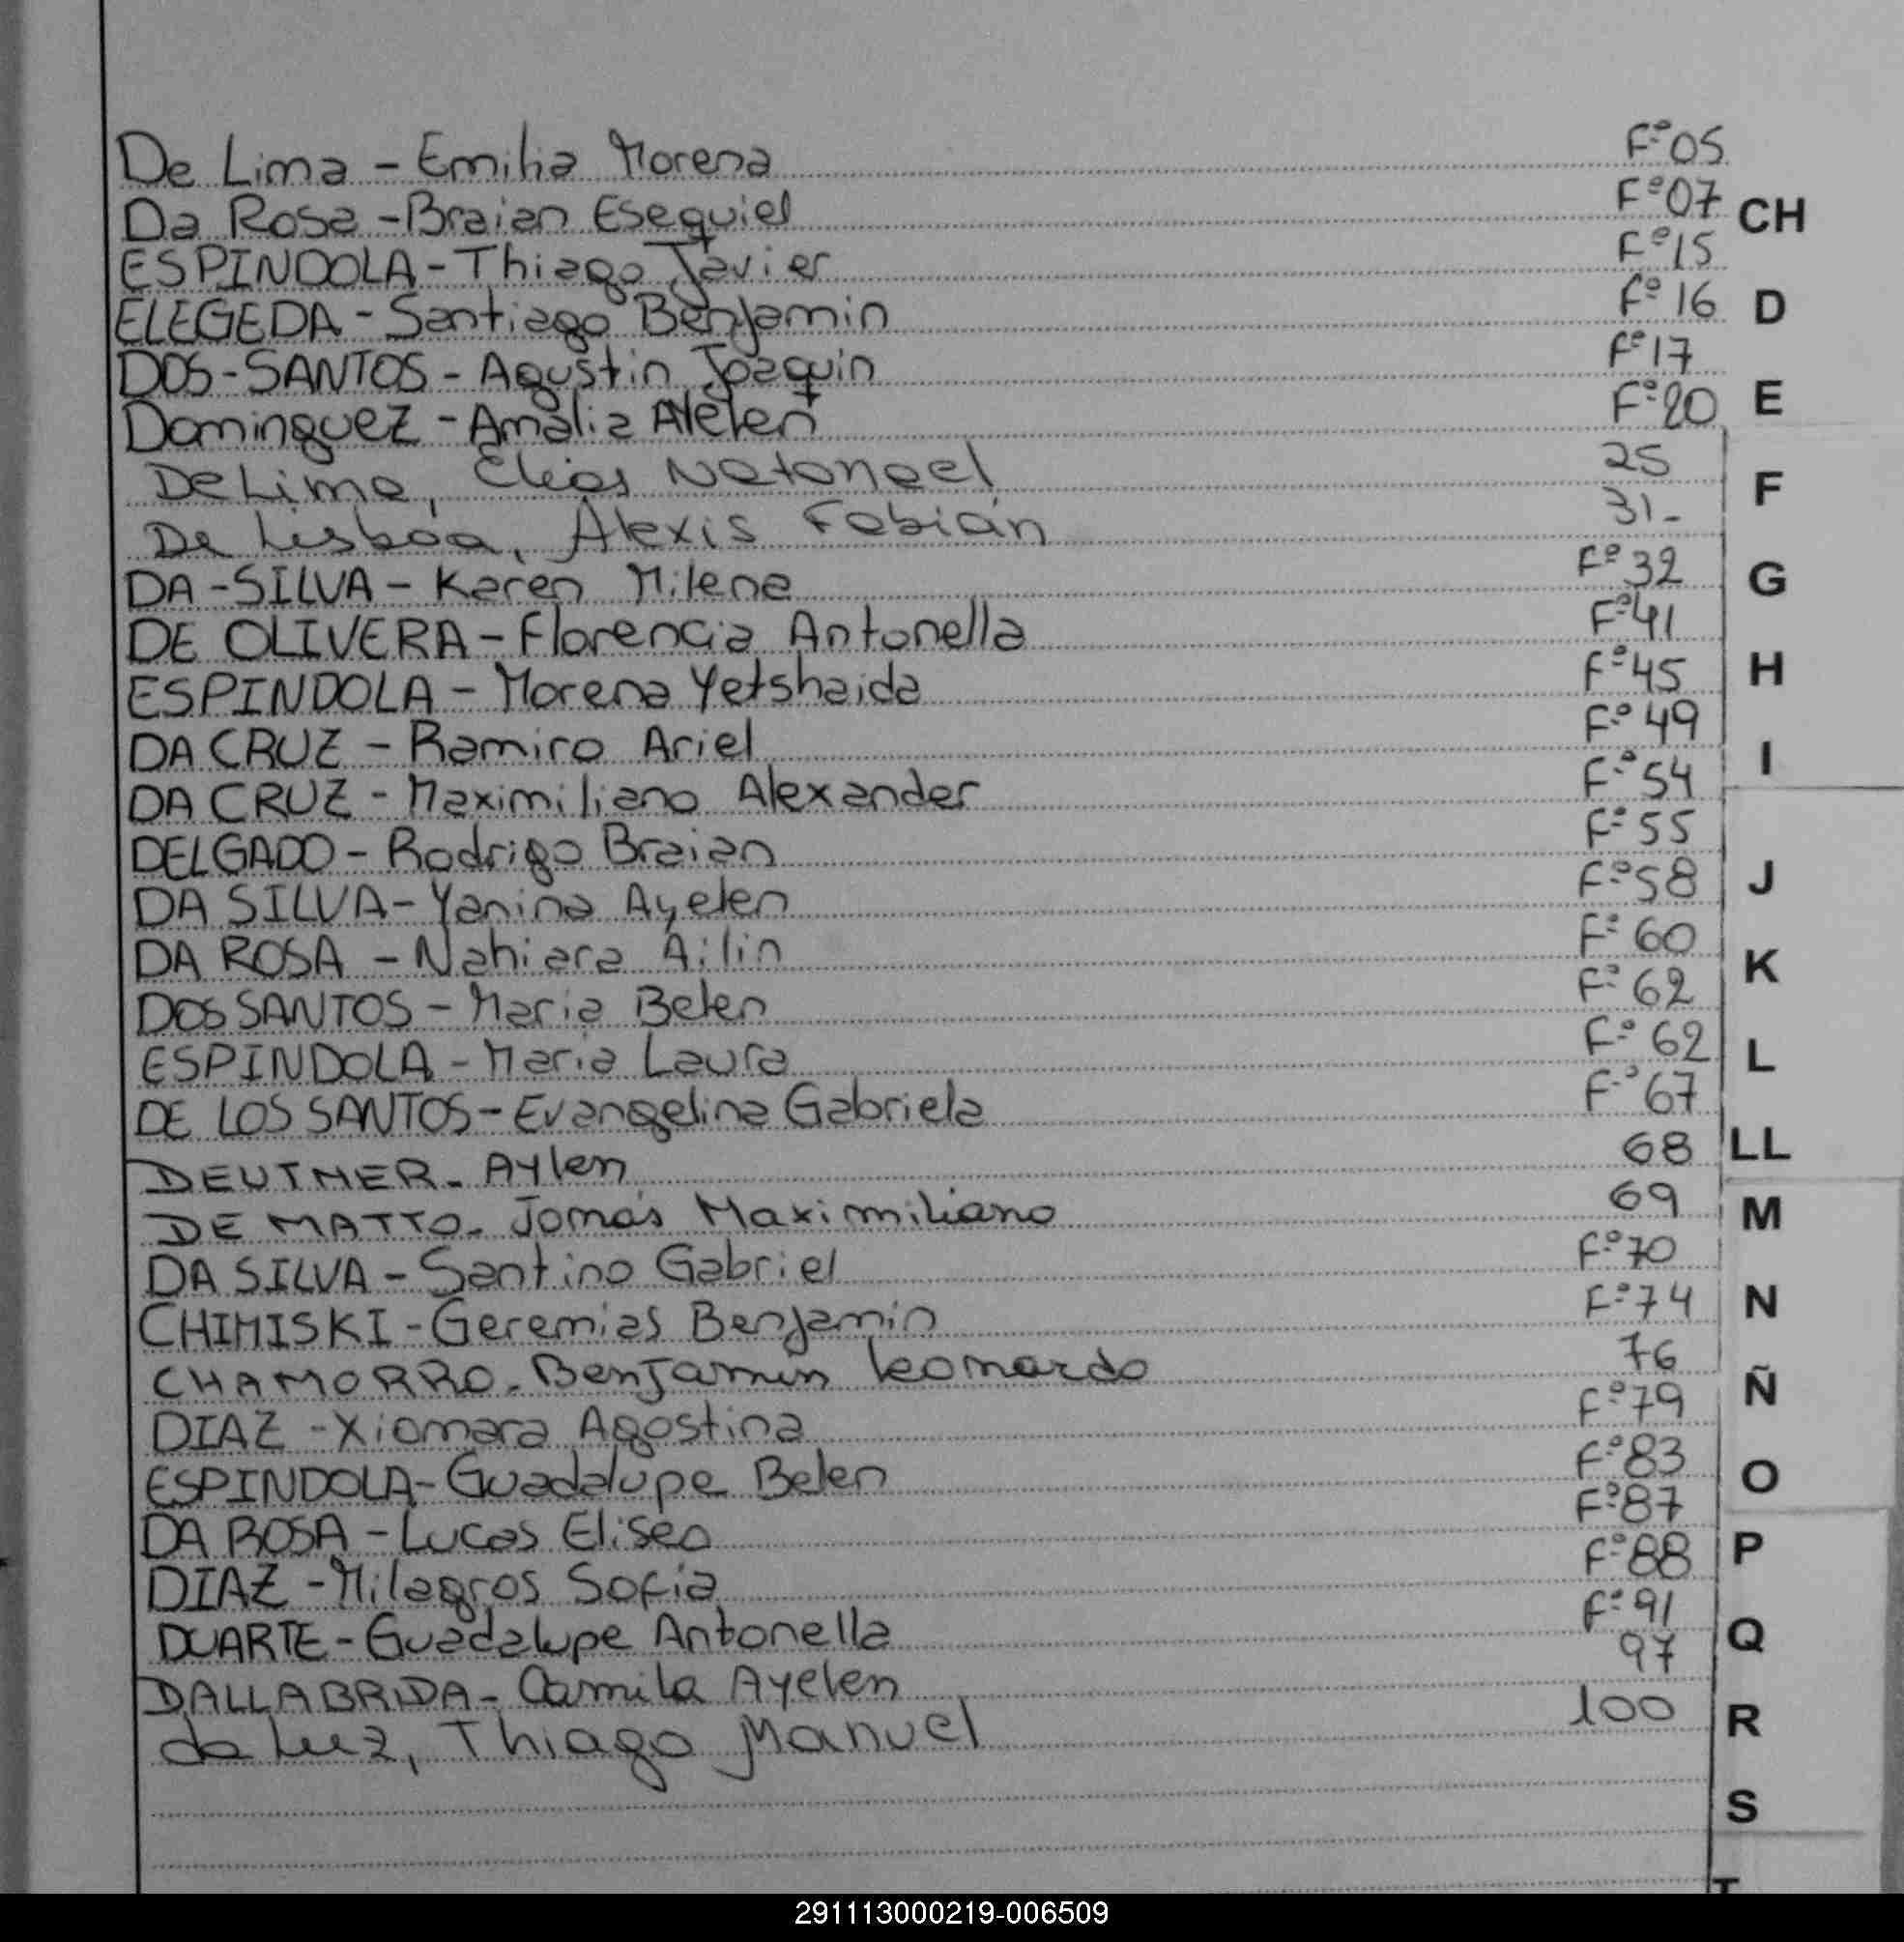 De Lima - Emilia Morena F°05
Da Rosa - Braian Esequiel F°07
CH
ESPINDOLA - Thiago Javier F°15
ELEGEDA - Santiago Benjamin F° 16
D
DOS-SANTOS - Agustin Joaquin F°17
Dominguez - Amalia Aielen F°20
E
De Lima, Elias Natanael 25
F
De Lisboa, Alexis Fabián 31-
DA-SILVA - Karen Milena F° 32
G
DE OLIVERA - Florencia Antonella F°41
ESPINDOLA - Morena Yetshaida F°45
H
DA CRUZ - Ramiro Ariel F° 49
I
DA CRUZ - Maximiliano Alexander F° 54
DELGADO - Rodrigo Braian F° 55
DA SILVA - Yanina Ayelen F°58
J
DA ROSA - Nahiara Ailin F° 60
K
DOS SANTOS - Maria Belen F° 62
ESPINDOLA - Maria Laura F° 62
L
DE LOS SANTOS - Evangelina Gabriela F° 67
DEUTMER - Aylen 68
LL
DE MATTO - Jomás Maximiliano 69
M
DA SILVA - Santino Gabriel F°70
CHIMISKI - Geremias Benjamin F°74
N
CHAMORRO - Benjamin Leonardo 76
Ñ
DIAZ - Xiomara Agostina F°79
ESPINDOLA - Guadalupe Belen F°83
O
DA ROSA - Lucas Eliseo F°87
DIAZ - Milagros Sofia F°88
P
DUARTE - Guadalupe Antonella F°91
Q
DALLABRIDA - Camila Ayelen 97
da Luz, Thiago Manuel 100
R
S
T
291113000219-006509